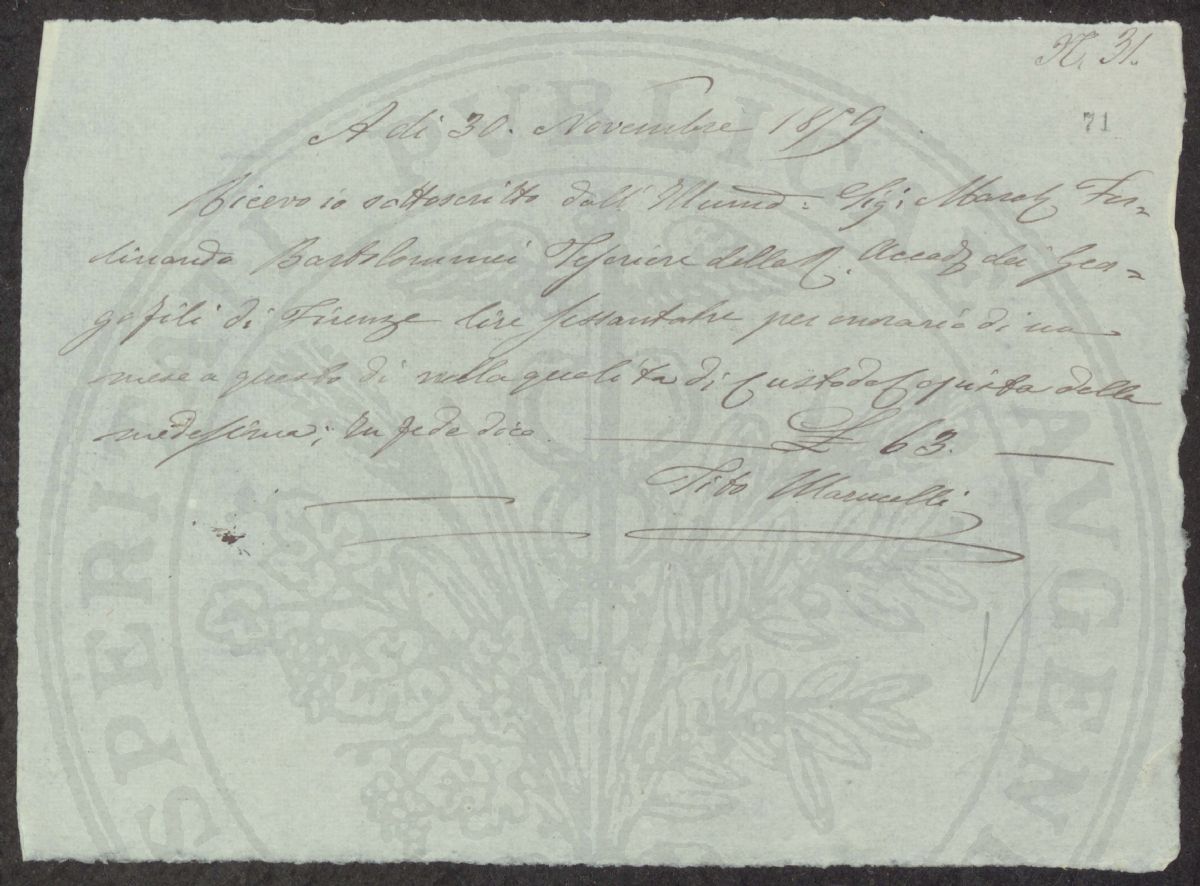 N. 31.
71
A di 30. Novembre 1859
Ricevo io sottoscritto dall' Illumo: Sig: March Fer=
dinando Bartolommei Tesoriere della R. Accad. dei Geor=
gofili di Firenze lire sessantatre per onorario di un
mese a questo dì nella qualità di Custode Copista della
medesima; In fede dico £ 63.
Tito Marucelli
PROSPERITATI PVBLICAE AVGENDAE